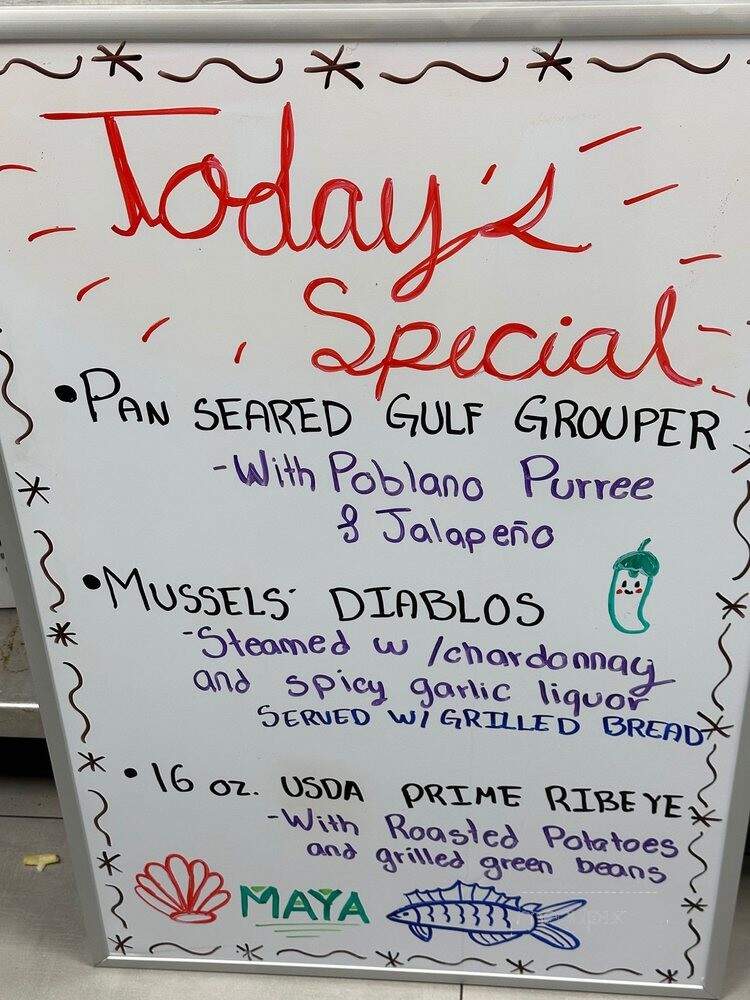 Today's
Special
• PAN SEARED GULF GROUPER
-With Poblano Purree
& Jalapeño
• MUSSELS' DIABLOS
-Steamed w/chardonnay
and spicy garlic liquor
SERVED W/ GRILLED BREAD
• 16 oz. USDA PRIME RIBEYE
-With Roasted Potatoes
and grilled green beans
MAYA